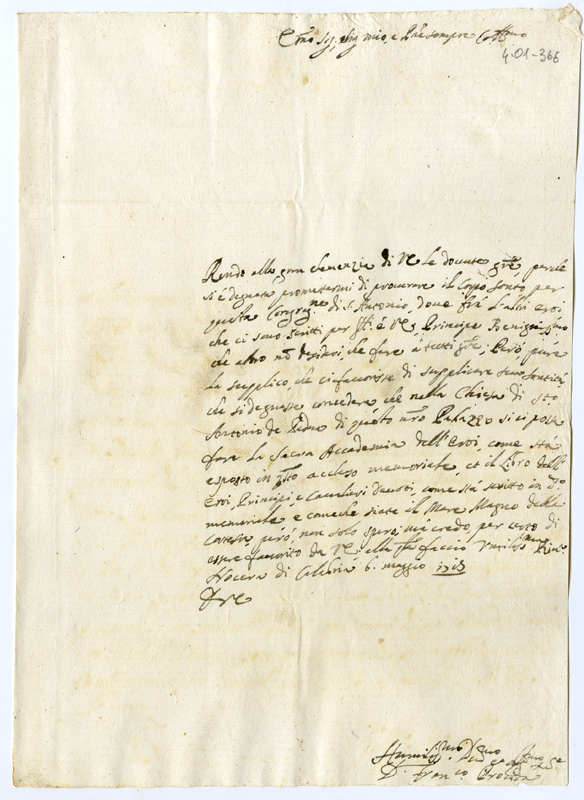 Sig. Sig. mio, e Prê sempre
4-01-366
Rendo alla gran clemenzia di VE le dovute grê, perche
si è degnata promettermi di procurare il Corpo Santo per
questa Congrag.ne di S. Antonio, dove frà l'altri eroi
che ci sono scritti per è VE, Principe Benignissimo
che altro nõ desideri, che fare à tutti grê, Però pure
la supplico, che ci favorisse di supplicare sua Santità,
che si degnasse concedere che nella Chiesa di Sto
Antonio de di questo nrô Palazzo si ci possa
fare la Sacra Accademia dell'Eroi, come stà
esposto in accluso memoriale, et il Libro dell'
eroi, Principi, e Cavalieri devoti, come stà scritto in
memoriale e comeche siate il Mare Magno delle
Cortesie, però, non solo spero, mà credo, per certo di
essere favorito da VE. alla faccio
Nocera di Calabria 6. maggio 1713
D. Franc.o